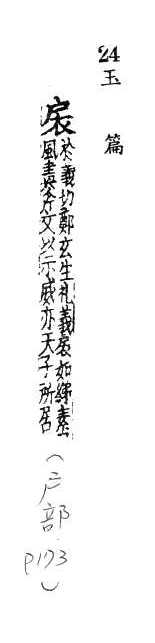 24
玉篇
扆
於豈切鄭玄注礼義扆如綈素屏
風畫斧文以示威亦天子所居
(戶部
P173)